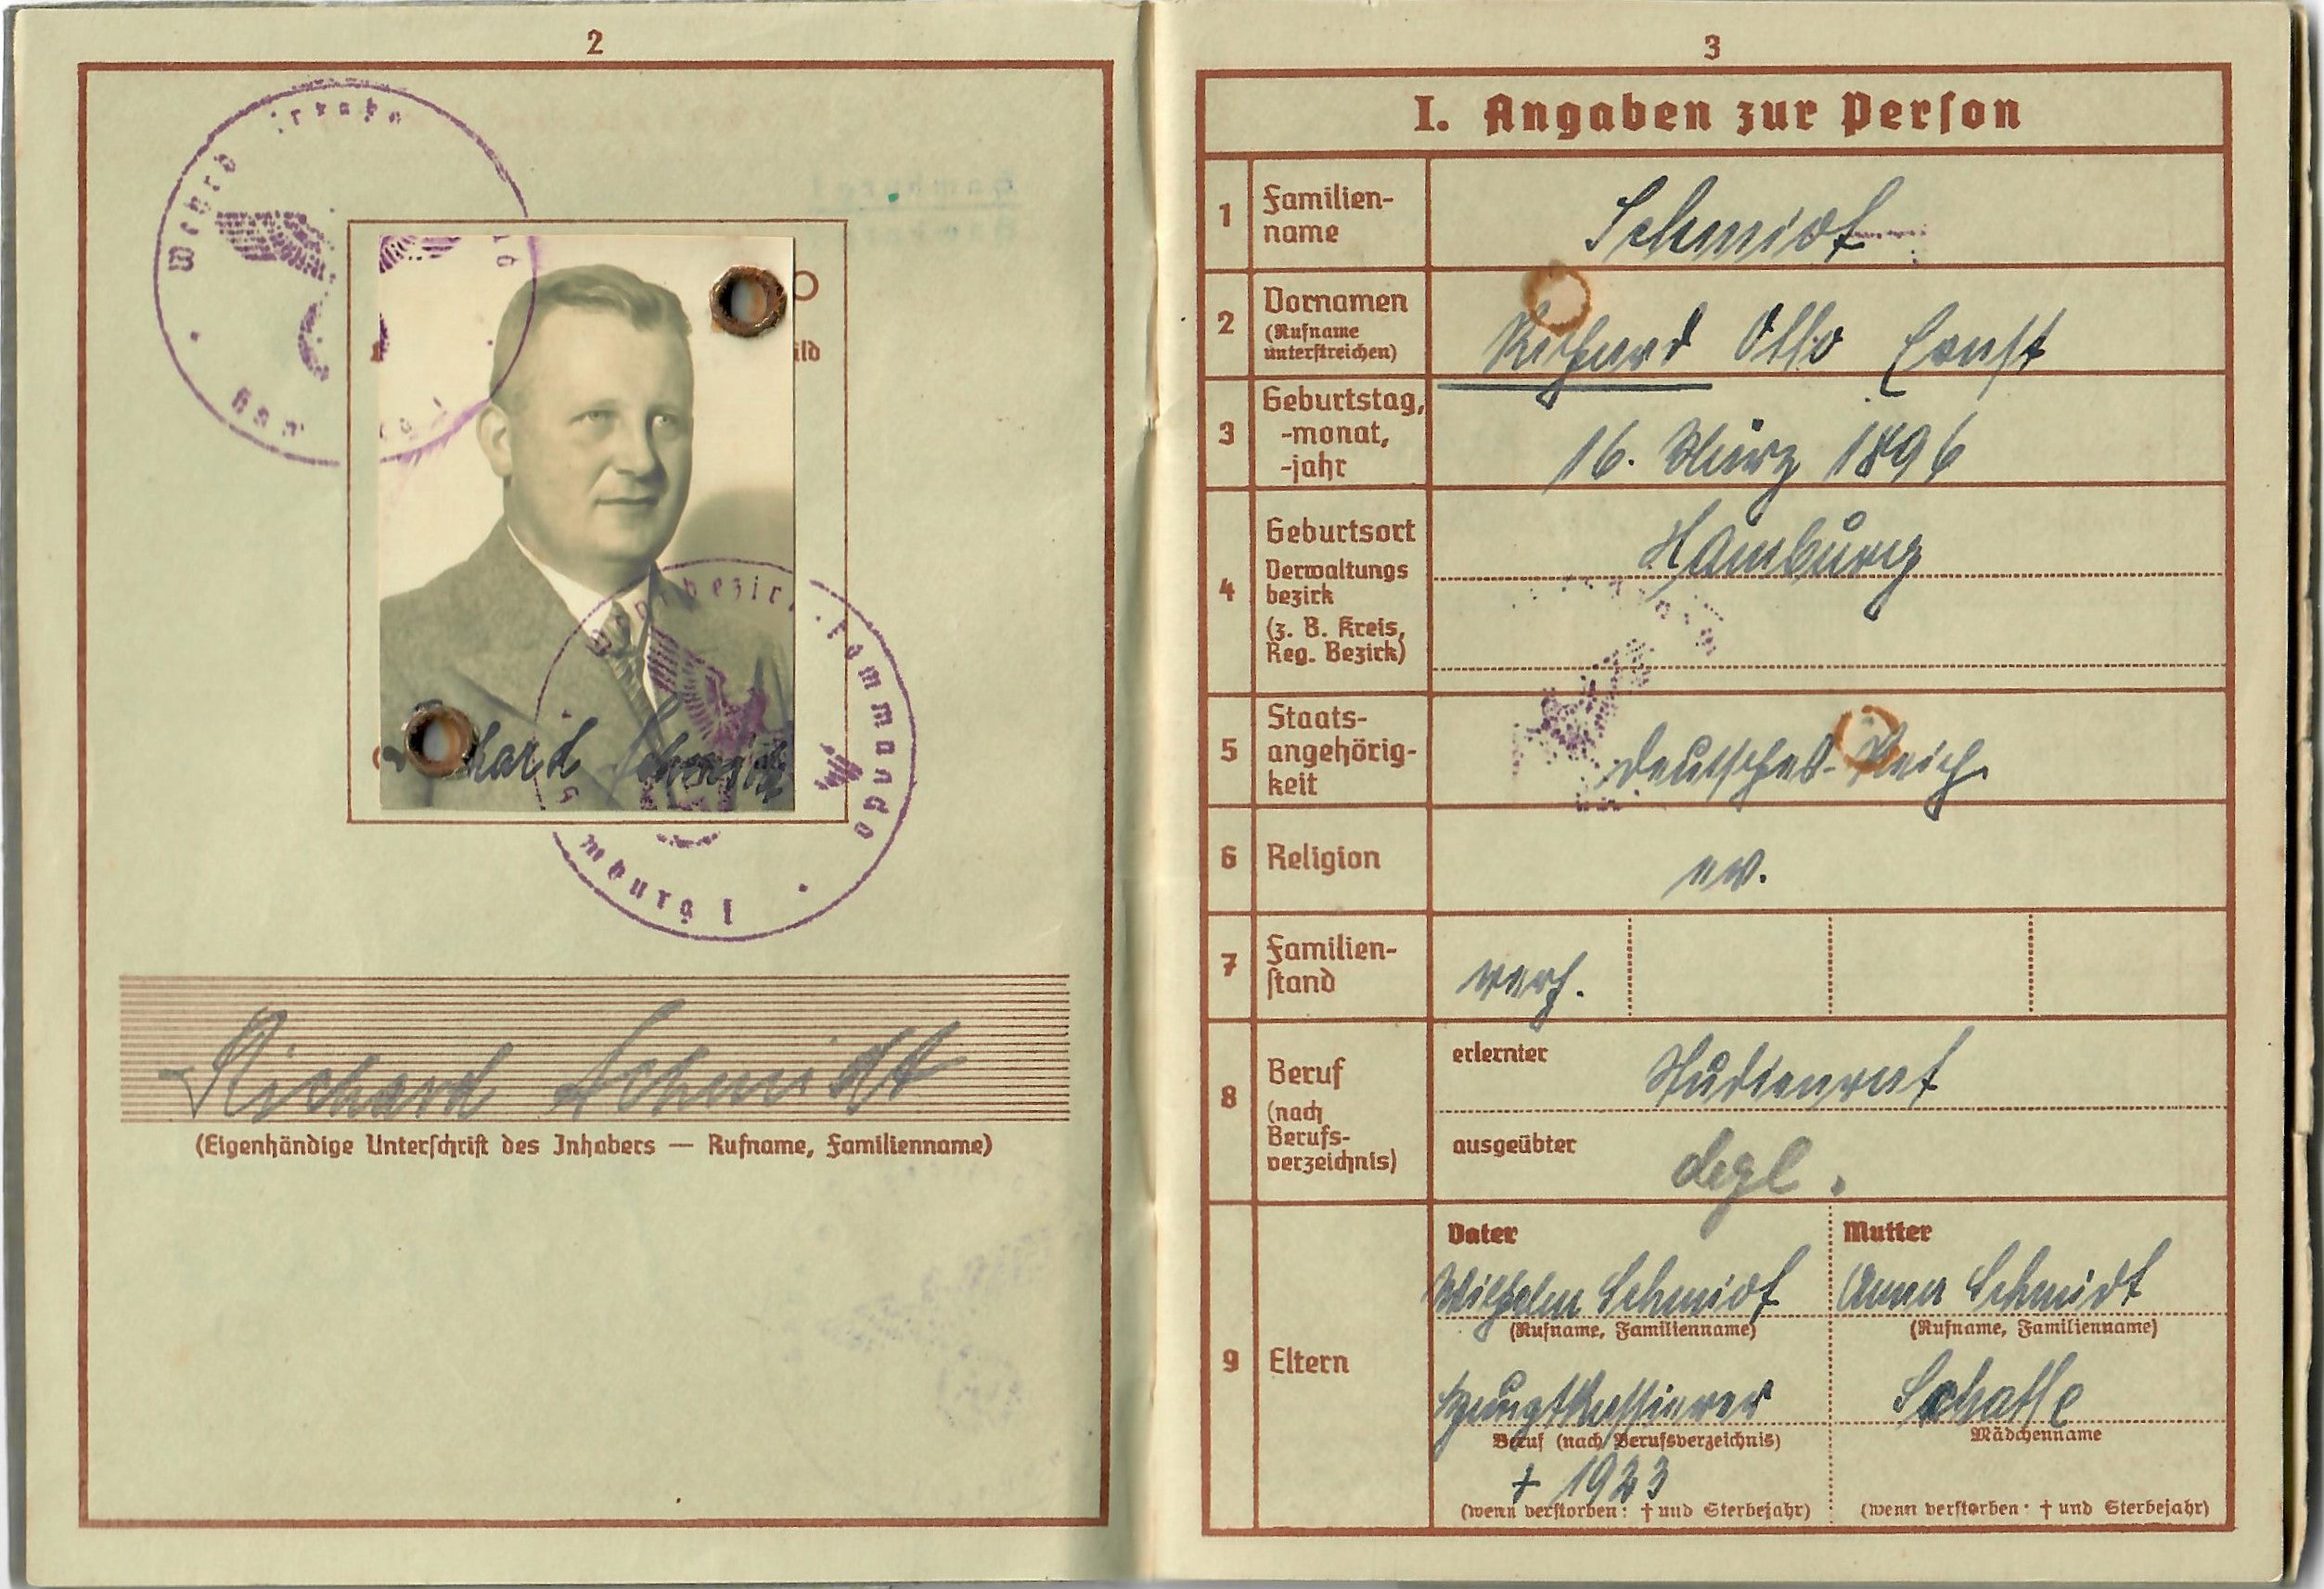 2
Wehrbezirkskommando
Hamburg I
bezirkskommando
mburg I
ild
hard Schmidt
Richard Schmidt
(Eigenhändige Unterschrift des Inhabers — Rufname, Familienname)
3
I. Angaben zur Person
1 Familien-
name
Schmidt
2 Vornamen
(Rufname
unterstreichen)
Richard Otto Ernst
3 Geburtstag,
-monat,
-jahr
16. März 1896
4 Geburtsort
Verwaltungs
bezirk
(z. B. Kreis,
Reg. Bezirk)
Hamburg
5 Staats-
angehörig-
keit
Deutsches Reich
6 Religion
ev.
7 Familien-
stand
verh.
8 Beruf
(nach
Berufs-
verzeichnis)
erlernter Studienrat
ausgeübter degl.
9 Eltern
Vater
Wilhelm Schmidt
(Rufname, Familienname)
Hauptkassierer
Beruf (nach Berufsverzeichnis)
+ 1923
(wenn verstorben: † und Sterbejahr)
Mutter
Anna Schmidt
(Rufname, Familienname)
Mädchenname
(wenn verstorben: † und Sterbejahr)